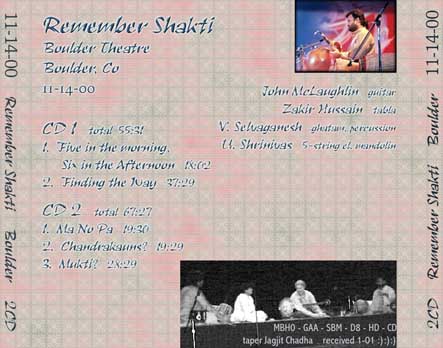 Remember Shakti
Boulder Theatre
Boulder, Co
11-14-00
John McLaughlin guitar
Zakir Hussain tabla
V. Selvaganesh ghatam, percussion
U. Shrinivas 5-string el. mandolin
CD 1 total 55:31
1. Five in the morning,
Six in the Afternoon 18:02
2. Finding the Way 37:29
CD 2 total 67:27
1. Ma No Pa 19:30
2. Chandrakauns? 19:29
3. Mukti? 28:29
MBHO - GAA - SBM - D8 - HD - CD
taper Jagjit Chadha received 1-01 :):):)
11-14-00 Remember Shakti Boulder 2CD
2CD Remember Shakti Boulder 11-14-00